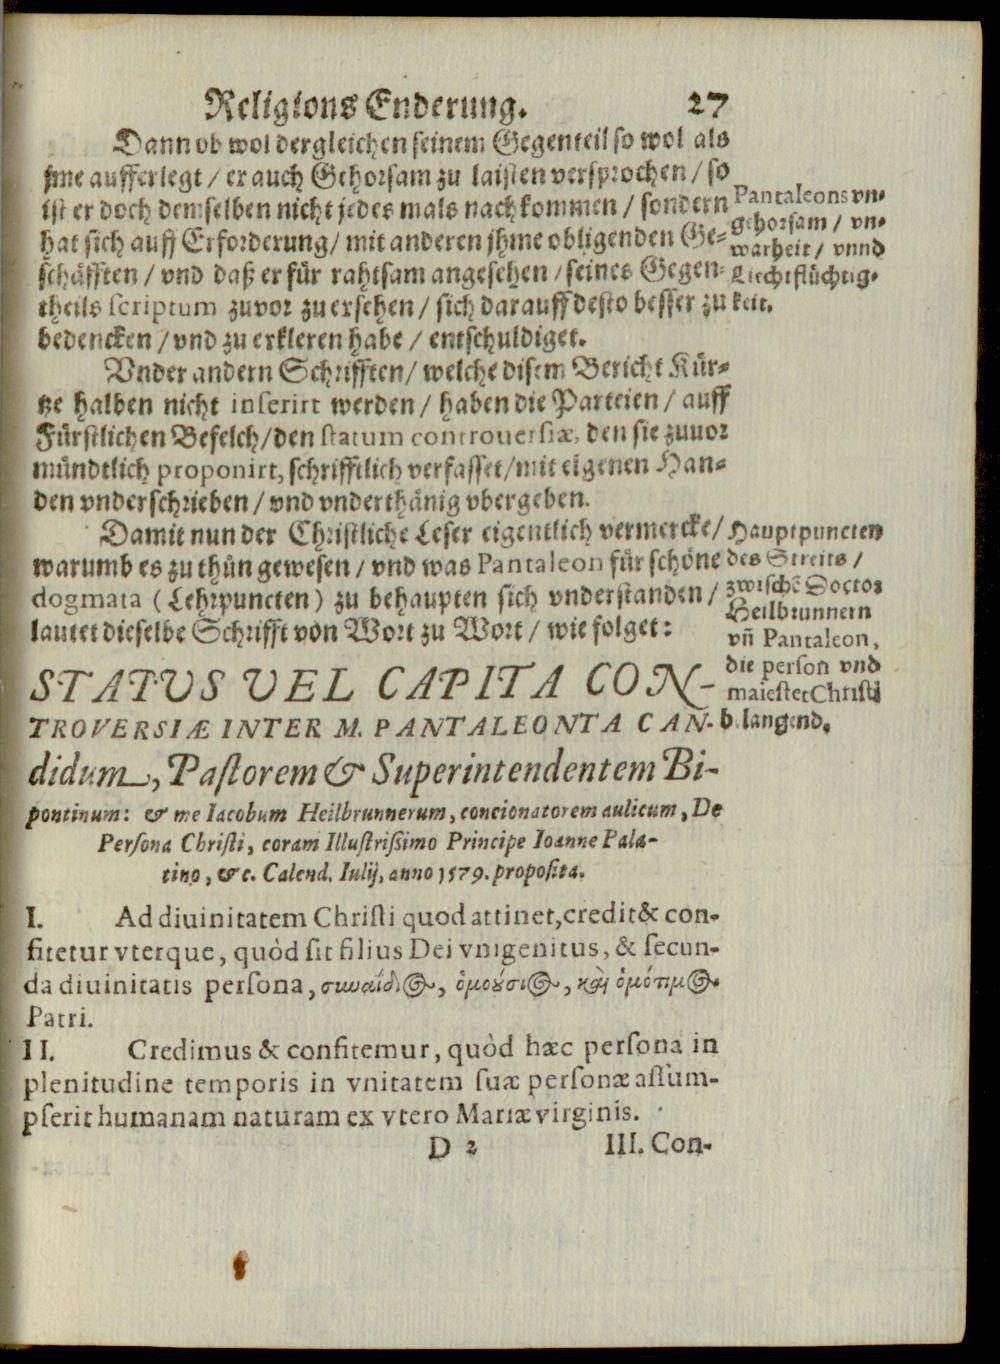 Religions Enderung. 27
Dann ob wol dergleichen seinem Gegenteil so wol als
jme aufferlegt / er auch Gehorsam zu laisten versprochen / so
ist er doch demselben nicht jedes mals nachkommen / sondern
hat sich auff Erforderung / mit anderen jhme obligenden Ge-
schäfften / vnd daß er für rahtsam angesehen / seines Gegen-
theils scriptum zuvor zu ersehen / sich darauff desto besser zu
bedencken / vnd zu erkleren habe / entschuldiget.
Pantaleons vn-
gehorsam / vn-
warheit / vnnd
Liechtflüchtig-
keit.
Vnder andern Schrifften / welche disem Bericht Kür-
tze halben nicht inserirt werden / haben die Parteien / auff
Fürstlichen Befelch / den statum controuersiæ, den sie zuuor
mündtlich proponirt, schrifftlich verfasset / mit eigenen Han-
den vnderschrieben / vnd vnderthänig vbergeben.
Damit nun der Christliche Leser eigentlich vermercke /
warumb es zu thůn gewesen / vnd was Pantaleon für schöne
dogmata ( Lehrpuncten ) zu behaupten sich vnderstanden /
lautet dieselbe Schrifft von Wort zu Wort / wie folget:
Hauptpuncten
des Streits /
zwischē Doctor
Heilbrunnern
vñ Pantaleon,
die person vnd
maiestet Christi
b langend.
STATVS VEL CAPITA CON-
TROVERSIÆ INTER M. PANTALEONTA CAN-
didum, Pastorem & Superintendentem Bi-
pontinum: & me Iacobum Heilbrunnerum, concionatorem aulicum, De
Persona Christi, coram Illustrißimo Principe Ioanne Pala-
tino, &c. Calend. Iulij, anno 1579. proposita.
I. Ad diuinitatem Christi quod attinet, credit & con-
fitetur vterque, quòd sit filius Dei vnigenitus, & secun-
da diuinitatis persona, συναΐδιος, ὁμούσιος, καὶ ὁμότιμος
Patri.
II. Credimus & confitemur, quòd hæc persona in
plenitudine temporis in vnitatem suæ personæ assum-
pserit humanam naturam ex vtero Mariæ virginis.
D 2 III. Con-